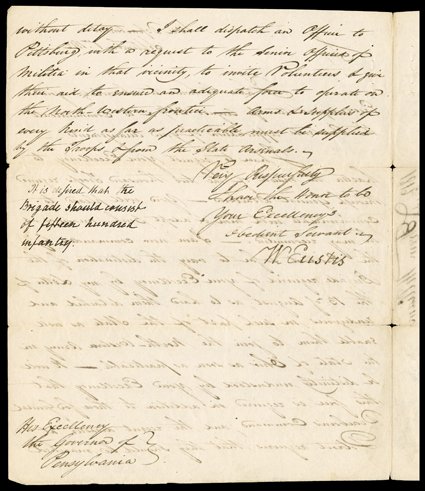 without delay — I shall dispatch an Officer to
Pittsburg with a request to the Senior Officers of
Militia in that vicinity, to invite Volunteers & give
their aid to ensure an adequate force to operate on
the North Western frontier — Arms & Supplies of
every kind as far as practicable must be supplied
by the Troops, & from the State Arsenals. —
Very Respectfully
I have the Honor to be
Your Excellency's
Obedient Servant
W Eustis
It is desired that the
Brigade should consist
of fifteen hundred
infantry.
His Excellency
the Governor of
Pensylvania